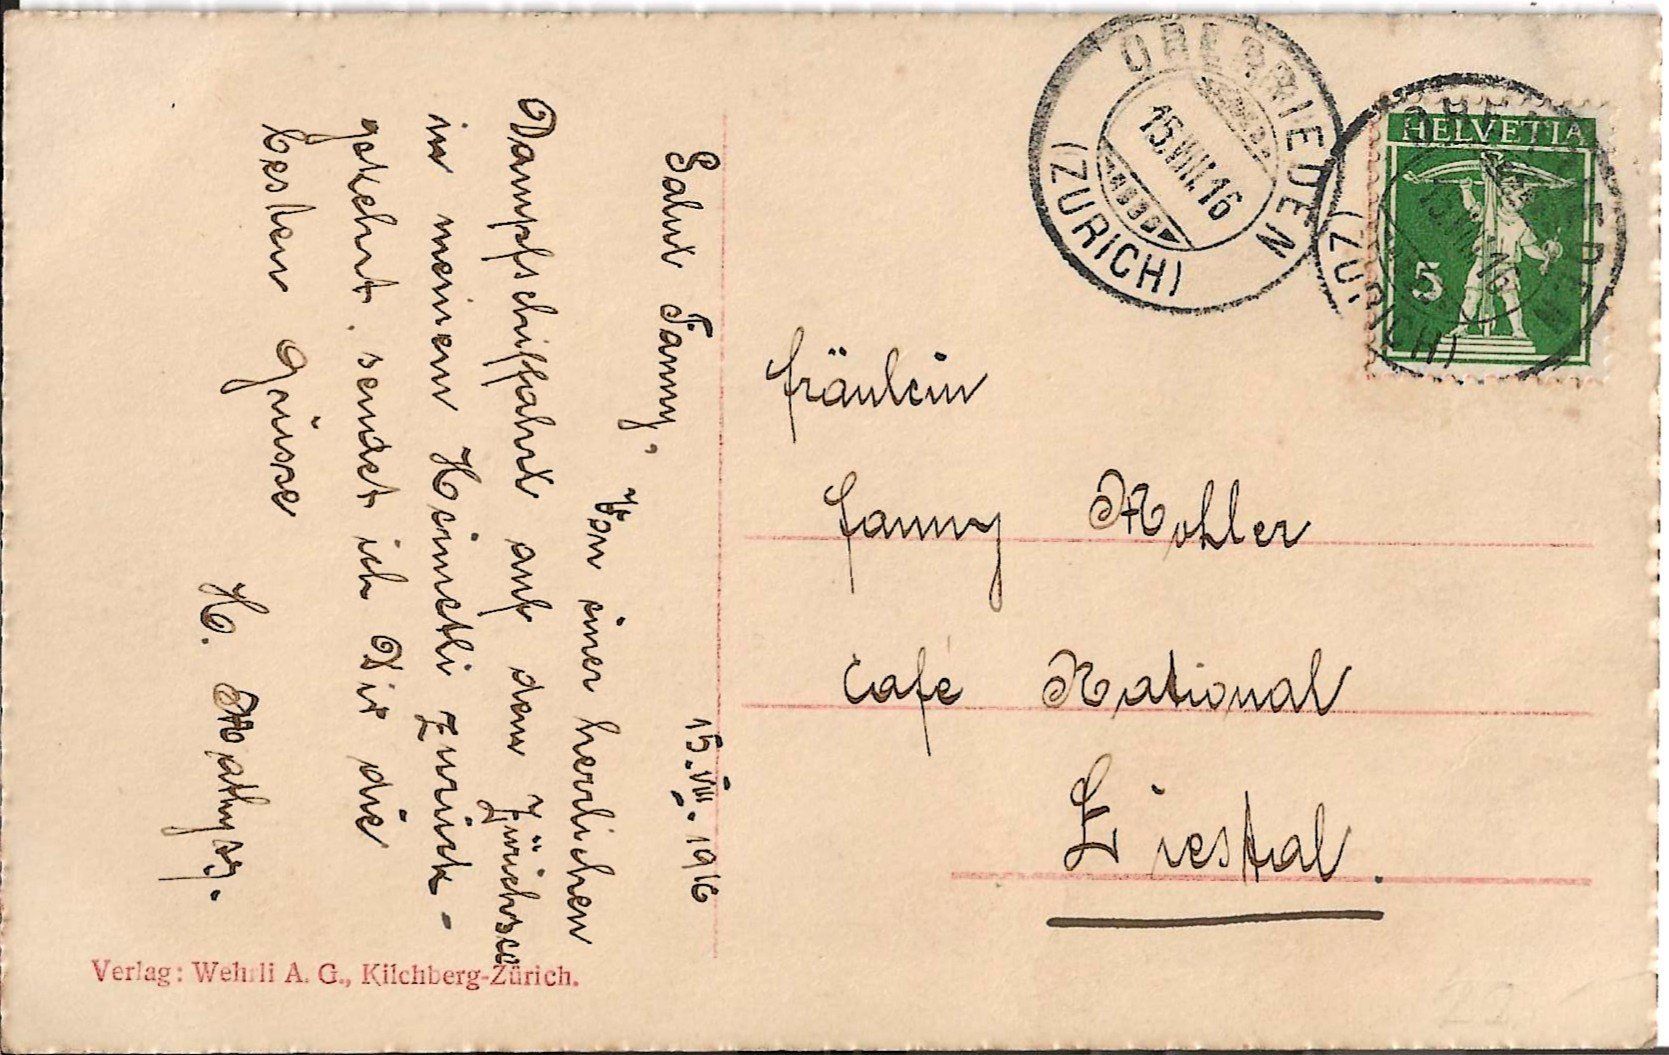 15.VIII.1916
Salut Fanny,
Von einer herrlichen
Dampfschiffahrt auf dem Zürichsee
in meinem Heimetli zurück-
gekehrt sendet ich Dir die
besten Grüsse
H.
Verlag: Wehrli A. G., Kilchberg-Zürich.
OBERRIEDEN
15.VIII.16
(ZÜRICH)
HELVETIA
5
OBERRIEDEN
15.VIII.16
(ZÜRICH)
Fräulein
Fanny Mohler
Café National
Liestal.